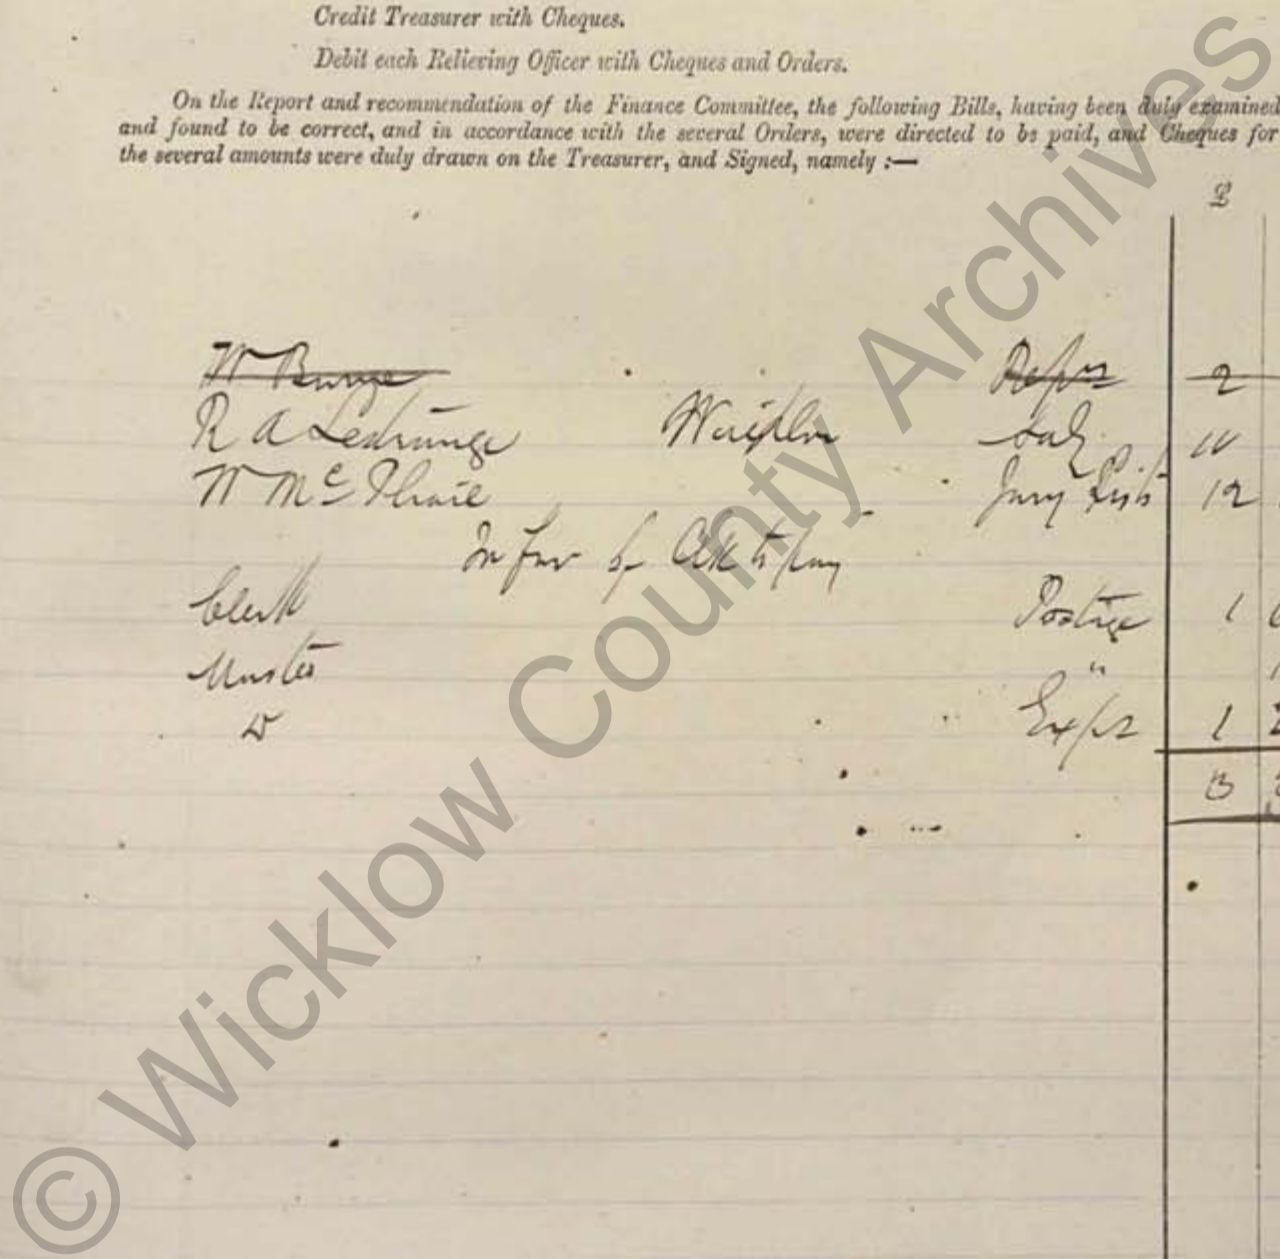 Credit Treasurer with Cheques.
Debit each Relieving Officer with Cheques and Orders.
On the Report and recommendation of the Finance Committee, the following Bills, having been duly examined
and found to be correct, and in accordance with the several Orders, were directed to be paid, and Cheques for
the several amounts were duly drawn on the Treasurer, and Signed, namely :—
£
W 2
R A Lestrange
W Mc Jury Lists 12
In fav of
Clerk Postage 1
Master "
Do Exps 1
© Wicklow County Archives